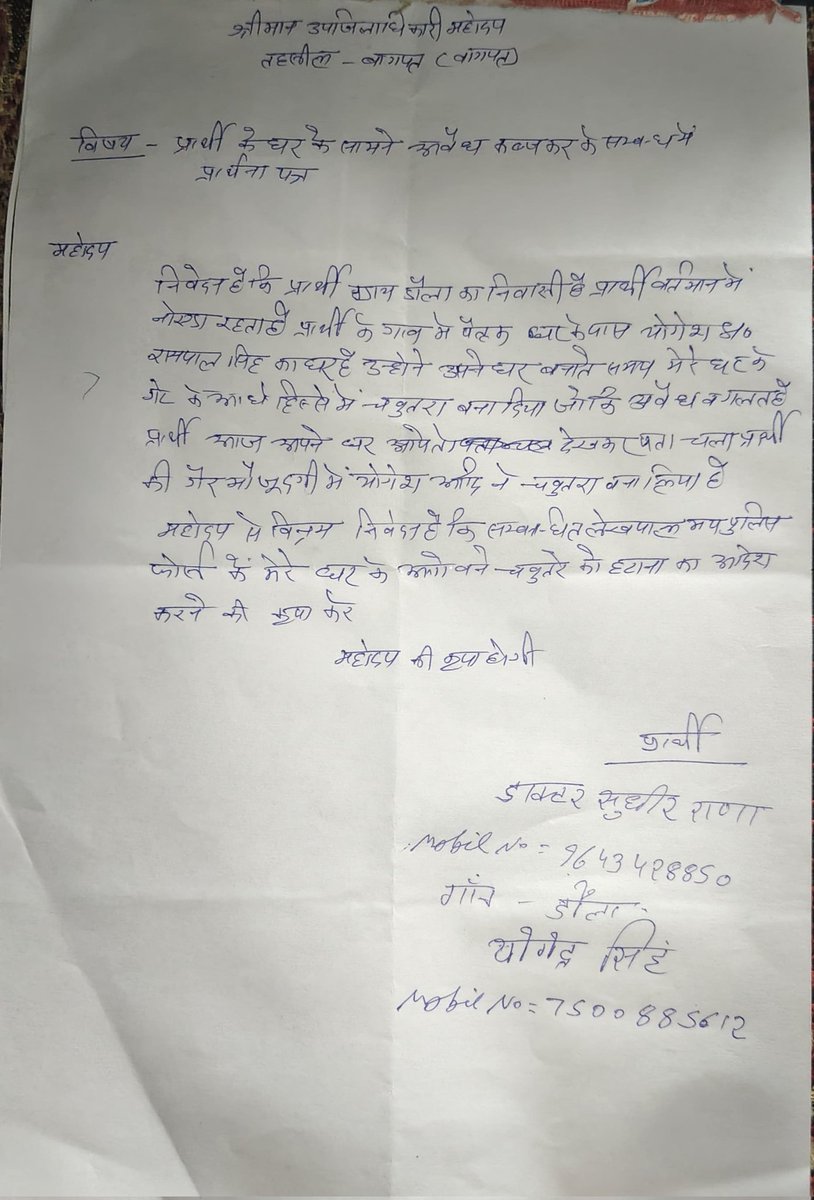 श्रीमान उपजिलाधिकारी महोदय
तहसील - बागपत (बागपत)
विषय - प्रार्थी के घर के सामने अवैध कब्ज कर के सम्बन्ध में
प्रार्थना पत्र
महोदय
निवेदन है कि प्रार्थी ग्राम डौला का निवासी है प्रार्थी वर्तमान में
नोएडा रहता है प्रार्थी के गाव मे पैतृक घर के पास योगेश S/o
रामपाल सिंह का घर है उन्होने अपने घर बनाते समय मेरे घर के
गेट के आधे हिस्से में चबुतरा बना दिया जोकि अवैध व गलत है
प्रार्थी आज अपने घर आये तो देखकर पता चला प्रार्थी
की गैर मौजूदगी में योगेश आदि ने चबुतरा बना लिया है
महोदय से विनम्र निवेदन है कि सम्बन्धित लेखपाल मय पुलिस
फोर्स के मेरे घर के आगे बने चबुतरे को हटाना का आदेश
करने की कृपा करे
महोदय की कृपा होगी
प्रार्थी
डाक्टर सुधीर राणा
Mobil No = 9643428850
गाँव - डौला
योगेन्द्र सिंह
Mobil No = 7500885612